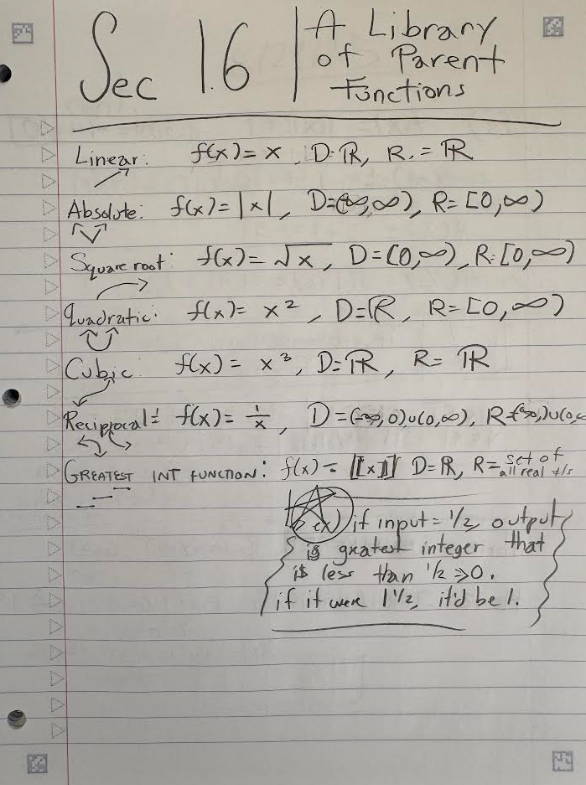 Sec 1.6 | A Library
of Parent
Functions
Linear: f(x) = x, D: ℝ, R: = ℝ
Absolute: f(x) = |x|, D=(-∞,∞), R= [0,∞)
Square root: f(x) = √x, D = [0,∞), R: [0,∞)
Quadratic: f(x) = x², D=ℝ, R= [0,∞)
Cubic: f(x) = x³, D=ℝ, R= ℝ
Reciprocal: f(x) = 1/x, D = (-∞,0)∪(0,∞), R=(-∞,0)∪(0,∞
GREATEST INT FUNCTION: f(x) = [[x]] D= ℝ, R= set of
all real #s
ex) if input = 1/2, output
is greatest integer that
is less than 1/2 ⇒ 0.
if it were 1 1/2, it'd be 1.